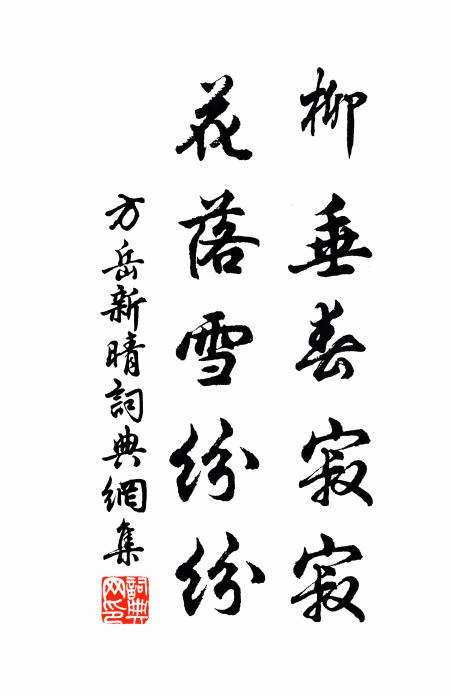 柳垂春寂寂
花落雪纷纷
方岳新晴詞典網集
詞典網印